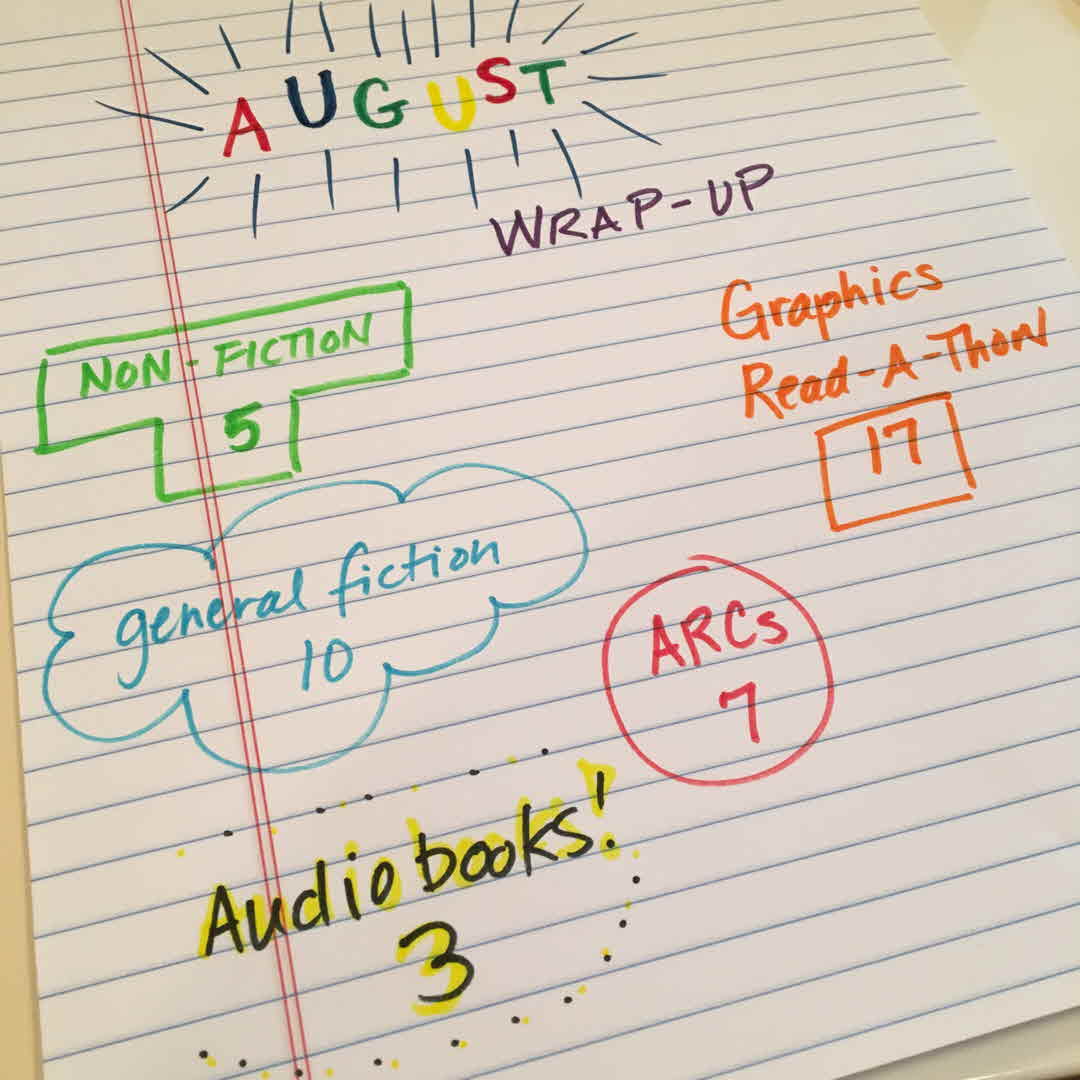 AUGUST
WRAP-UP
NON-FICTION
5
Graphics
Read-A-Thon
17
general fiction
10
ARCs
7
Audiobooks!
3